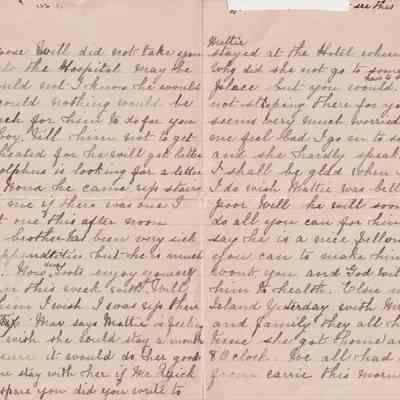 see this
pose Will did not take you
to the Hospital may be he
could not I know he would
could nothing would be
much for him to do for you
Boy. Tell him not to get
he will get better
Dolphus is looking for a letter
he came up stairs
me if there was one I
t one this after noon
brother has been very sick
appendicitis but he is much
Now Toots enjoy yourself
in this week with Will
him I wish I was up there
Mae says Mattie is feeling
wish she could stay a month
sure it would do her good
stay with her if Mr Quick
spare you did you write to
Mattie
stayed at the Hotel where
why did she not go to some
place but you would
not stopping there for yo
seems very much worried
me feel bad I go in to se
and she hardly speak
I shall be glad when
I do wish Mattie was bett
poor Will he will soon
do all you can for him
say he is a nice fellow
you can to make him
want you and God will
him to health.
Island Yesterday with
and family they all h
time she got home at
8 O clock. I've all had
from carrie this morni